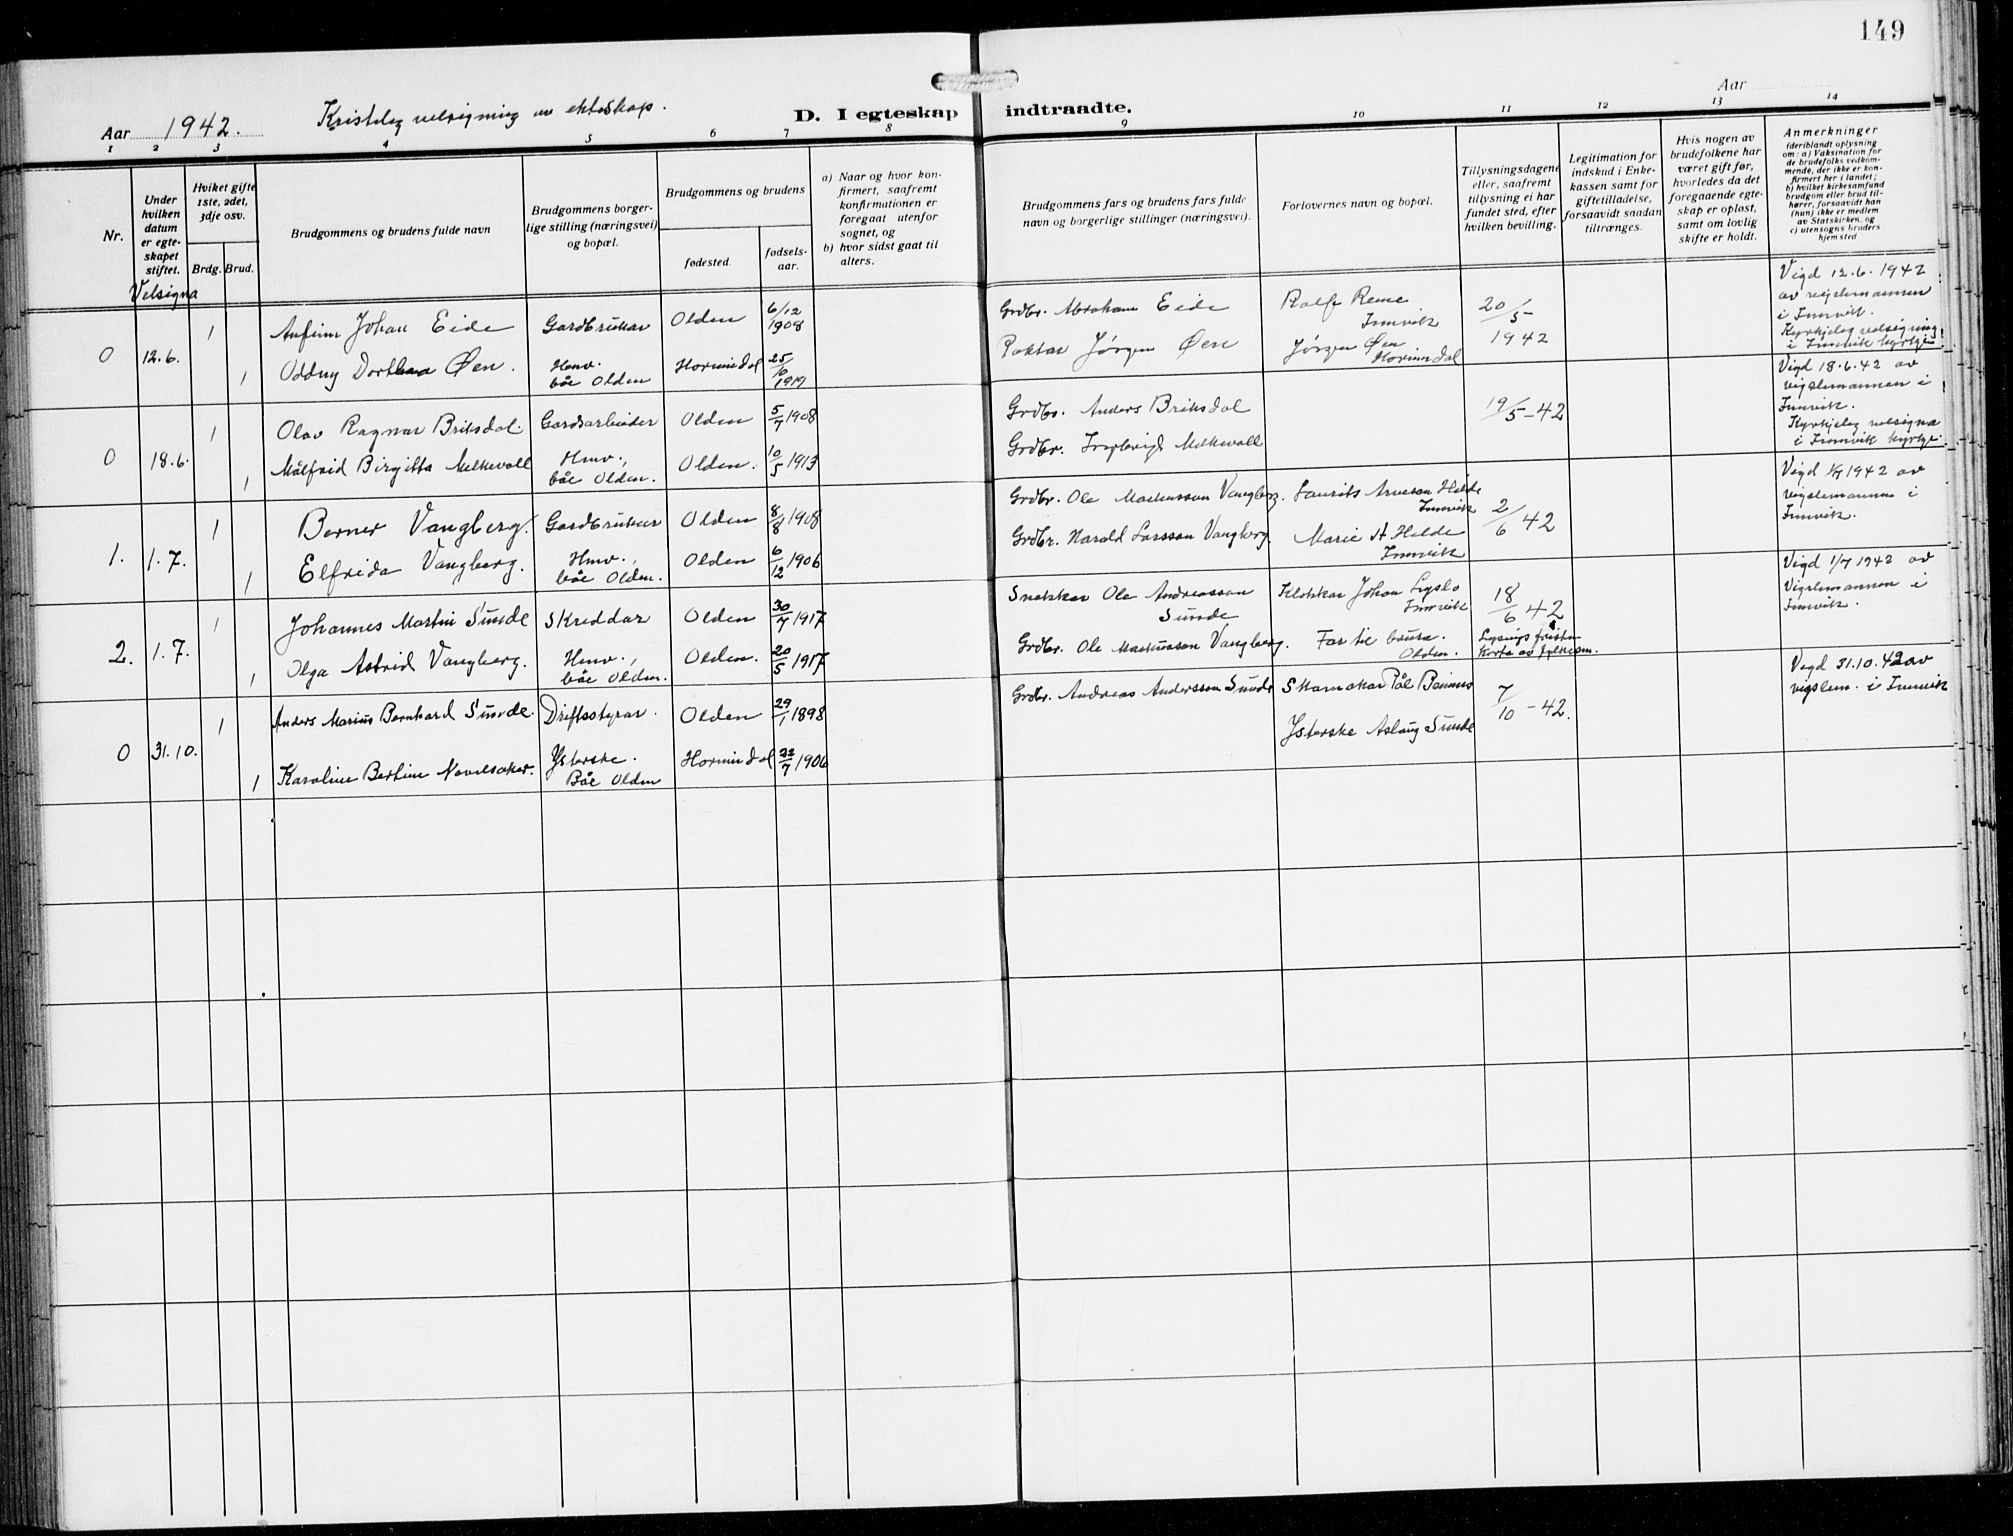 149
Aar 1942.
Kristeleg velsigning av ekteskap.
D. I egteskap
indtraadte.
Aar
1 2 3 4 5 6 7 8
9 10 11 12 13 14
Nr.
Under hvilken datum er egteskapet stiftet.
Hviket gifte 1ste, 2det, 3dje osv.
Brdg. Brud.
Brudgommens og brudens fulde navn
Brudgommens borgerlige stilling (næringsvei) og bopæl.
Brudgommens og brudens
fødested.
fødselsaar.
a) Naar og hvor konfirmert, saafremt konfirmationen er foregaat utenfor sognet, og
b) hvor sidst gaat til alters.
Brudgommens fars og brudens fars fulde navn og borgerlige stillinger (næringsvei).
Forlovernes navn og bopæl.
Tillysningsdagene eller, saafremt tillysning ei har fundet sted, efter hvilken bevilling.
Legitimation for indskud i Enkekassen samt for giftetilladelse, forsaavidt saadan tiltrænges.
Hvis nogen av brudefolkene har været gift før, hvorledes da det foregaaende egteskap er opløst, samt om lovlig skifte er holdt.
Anmerkninger
(deriblandt oplysning om: a) Vaksination for de brudefolks vedkommende, der ikke er konfirmert her i landet;
b) hvilket kirkesamfund brudgom eller brud tilhører, forsaavidt han (hun) ikke er medlem av Statskirken, og
c) utensogns bruders hjemsted
Velsigna
0 12.6.
1 Anfinn Johan Eide Gardbrukar Olden 6/12 1908
Grdbr. Abraham Eide
Rolf Reme Innvik
20/5 1942
Vigd 12.6.1942 av vigslemannen i Innvik.
Kyrkjeleg velsigning i Innvik kyrkje
1 Oddny Dorthea Øen. Hmv. båe Olden Hornindal 25/10 1919
Jørgen Øen
Jørgen Øen Hornindal
0 18.6.
1 Olav Ragnar Briksdal. Gardsarbeider Olden 5/7 1908
Grdbr. Anders Briksdal
19/5-42
Vigd 18.6.42 av vigslemannen i Innvik.
Kyrkjeleg velsigna i Innvik kyrkje
1 Målfrid Birgitta Melkevoll Hmv., båe Olden. Olden. 10/5 1913
Grdbr. Melkevoll
1. 1.7.
1 Berner Vangberg. Gardbrukar Olden 8/8 1908
Grdbr. Ole Markusson Vangberg.
Laurits Arneson Hilde Innvik
2/6 42
Vigd 1/7 1942 av vigslemannen i Innvik.
1 Elfrida Vangberg. Hmv., båe Olden. Olden 6/12 1906
Grdbr. Harald Larsson Vangberg.
Marie A Hilde Innvik
2. 1.7.
1 Johannes Martin Sunde Skreddar Olden 30/7 1917
Snekkar Ole Andreasson Sunde
Klokkar Johan Lyslo Innvik
18/6 42
Vigd 1/7 1942 av Vigslemannen i Innvik.
1 Olga Astrid Vangberg. Hmv., båe Olden. Olden. 20/5 1917
Grdbr. Ole Markusson Vangberg.
Far til brura. Olden.
Lysingsfristen korta av fylkesm.
0 31.10.
1 Anders Marius Bernhard Sunde. Driftsstyrar. Olden 29/1 1898
Grdbr. Andreas Andersson Sunde
Skomakar Pål
7/10-42.
Vigd 31.10.42 av vigslem. i Innvik
1 Karoline Bertine Navelsaker. Ysterske. Båe Olden Hornindal 22/7 1906
Ysterske Aslaug Sunde